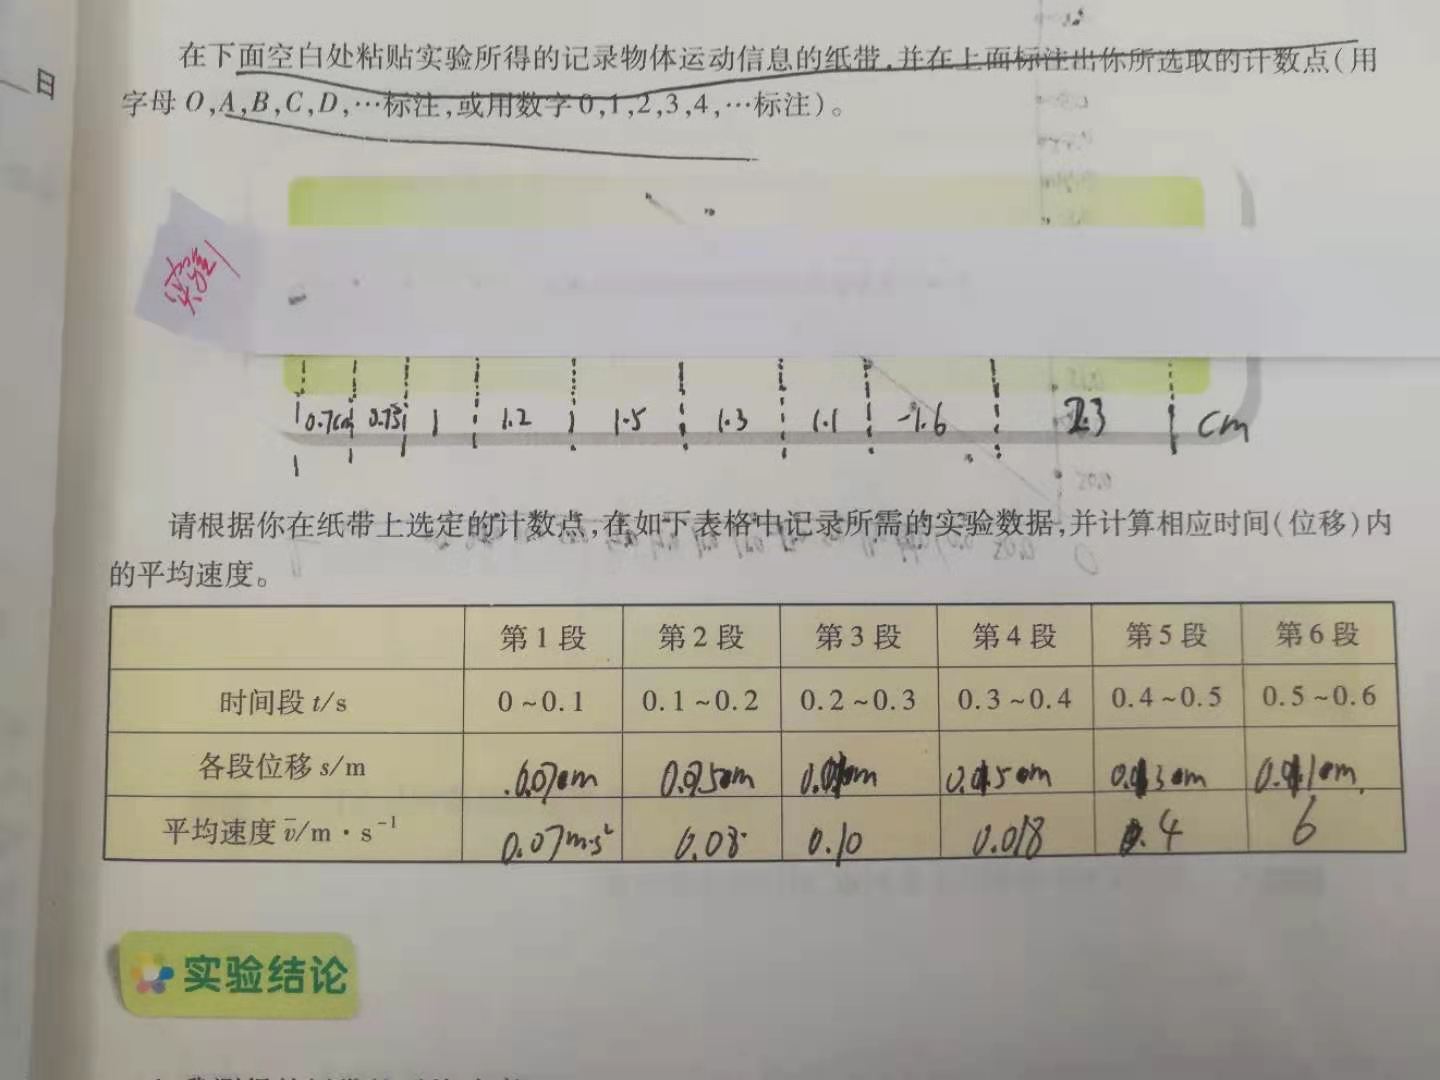 日
在下面空白处粘贴实验所得的记录物体运动信息的纸带,并在上面标注出你所选取的计数点(用
字母O,A,B,C,D,…标注,或用数字0,1,2,3,4,…标注)。
实验1
0.7cm 0.75 1 1.2 1.5 1.3 1.1 1.6 2.3 cm
请根据你在纸带上选定的计数点,在如下表格中记录所需的实验数据,并计算相应时间(位移)内
的平均速度。
第1段 第2段 第3段 第4段 第5段 第6段
时间段 t/s 0~0.1 0.1~0.2 0.2~0.3 0.3~0.4 0.4~0.5 0.5~0.6
各段位移 s/m
平均速度 v̄/m·s⁻¹ 0.07m·s² 0.08 0.10 0.018 4 6
实验结论